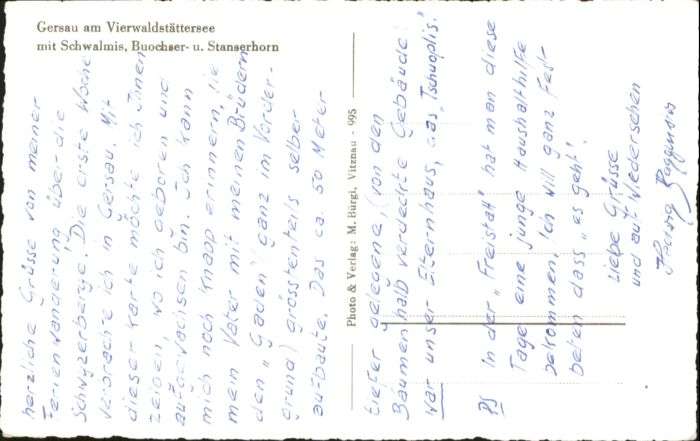 Gersau am Vierwaldstättersee
mit Schwalmis, Buochser- u. Stanserhorn
herzliche Grüsse von meiner
Ferienwanderung über die
Schwyzerberge. Die erste Woche
verbrachte ich in Gersau. Mit
dieser Karte möchte ich Ihnen
zeigen, wo ich geboren und
aufgewachsen bin. Ich kann
mich noch knapp erinnern, wie
mein Vater mit meinen Brüdern
den "Gaden" (ganz im Vorder-
grund) grösstenteils selber
aufbaute. Das ca. 50 Meter
Photo & Verlag: M. Bürgi, Vitznau 995
tiefer gelegene, (von den
Bäumen halb verdeckte Gebäude)
war unser Elternhaus, das "Tschuoplis".
PS In der "Freistatt" hat man diese
Tage eine junge Haushalthilfe
bekommen. Ich will ganz fest
beten dass "es geht".
Liebe Grüsse
und auf Wiedersehen